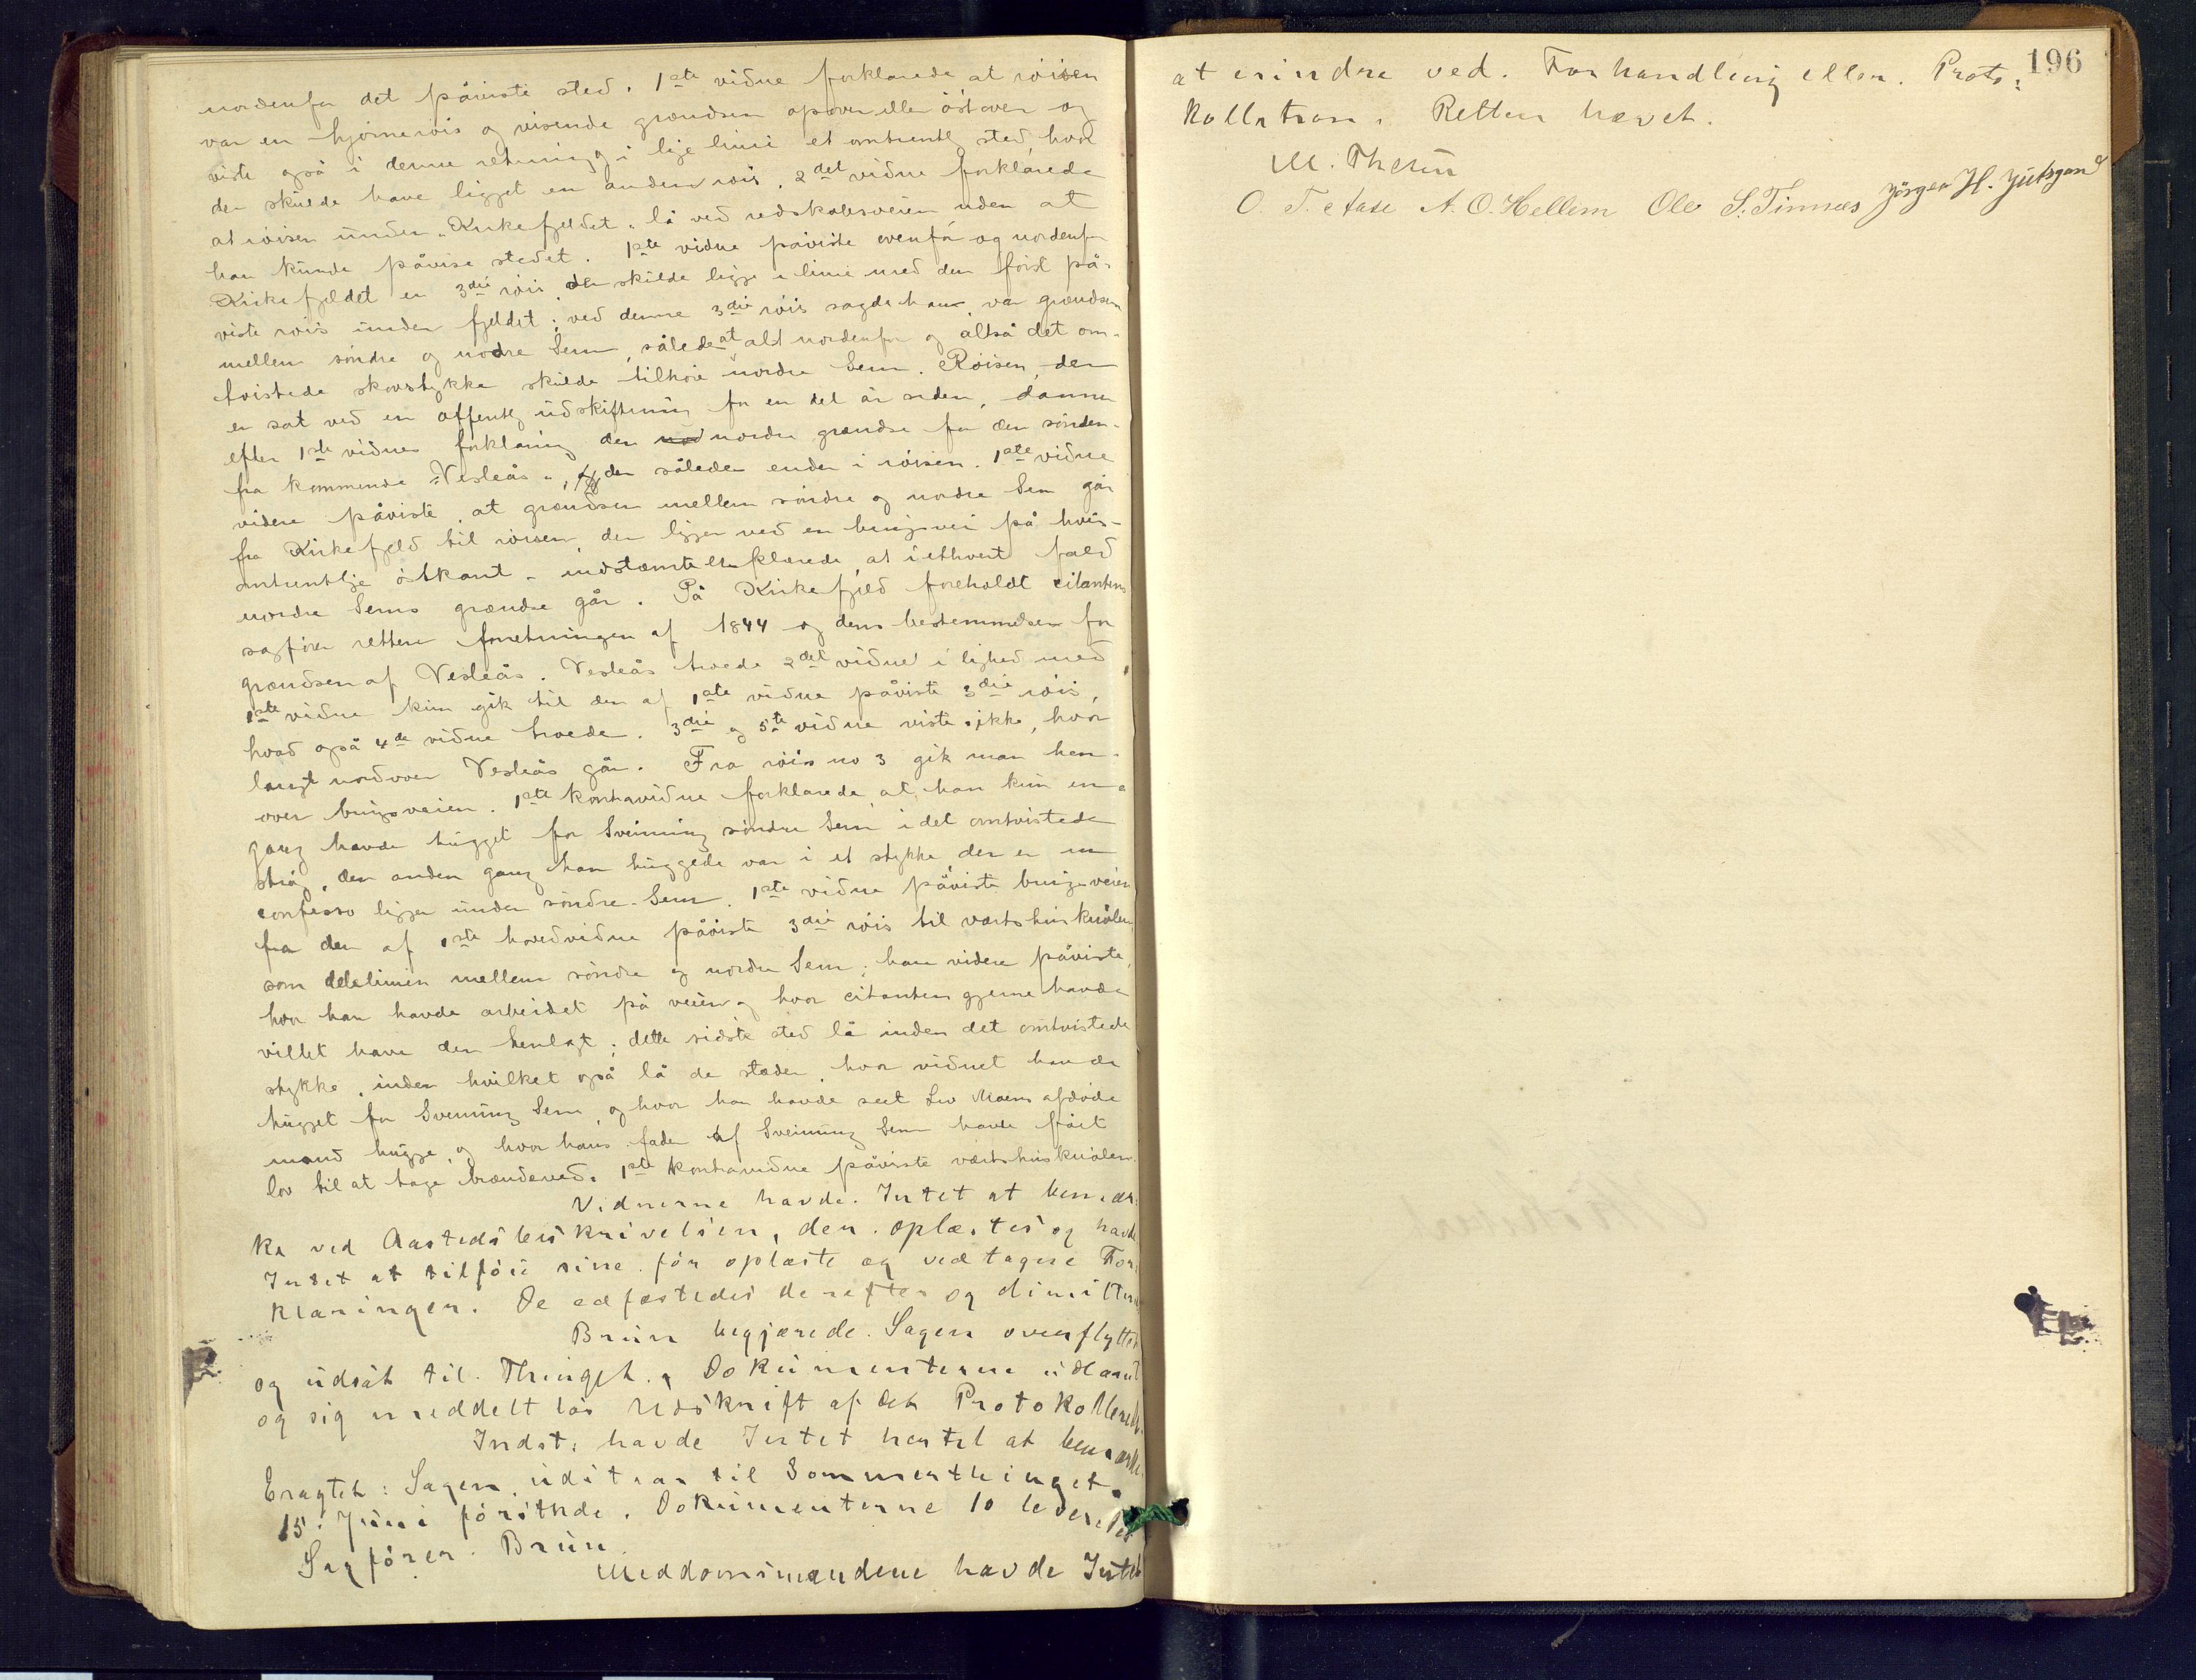 nordenfor det påviste sted. 1ste vidne forklarede at röisen
var en hjörneröis og visende grændsen opover eller östover og
viste også i denne retning i lige linie et omtrentlg sted, hvor
der skulde have ligget en anden röis. 2det vidne forklarede
at röisen under "Kirkefjeldet" lå ved redskabsveien uden at
han kunde påvise stedet. 1ste vidne påviste ovenfor og nordenfor
Kirkefjeldet en 3die röis, der skulde ligge i linie med den först på-
viste röis under fjeldet; ved denne 3die röis sagde han, var grændsen
mellem söndre og nordre Sem, således at alt nordenfor og altså det om-
tvistede skovstykke skulde tilhöre nordre Sem. Röisen, der
er sat ved en offentlg udskiftning for en del år siden, danner
efter 1ste vidnes forklaring den nordre grændse for den sönden-
fra kommende "Vesleås", der således ender i röisen. 1ste vidne
videre påviste, at grændsen mellem söndre og nordre Sem går
fra Kirkefjeld til röisen, der ligger ved en brugsvei på hvis
omtrentlige östkant - indstævnte erklærede, at i ethvert fald
nordre Sems grændse går. På Kirkefjeld foreholdt citantens
sagförer retten forretningen af 1844 og dens bestemmelser for
grændsen af Vesleås. Vesleås troede 2det vidne i lighed med
1ste vidne kun gik til den af 1ste vidne påviste 3die röis,
hvad også 4de vidne troede. 3die og 5te vidne viste ikke, hvor
langt nordover Vesleås går. Fra röis no 3 gik man hen-
over brugsveien. 1ste kontravidne forklarede, at han kun en
gang havde hugget for Sveinung söndre Sem i det omtvistede
strög, den anden gang han huggede var i et stykke, der er in
confesso ligger under söndre Sem. 1ste vidne påviste brugsveien
fra den af 1ste hovedvidne påviste 3die röis til værtshusknålen
som delelinien mellem söndre og nordre Sem; han videre påviste,
hvor han havde arbeidet på veien og hvor citanten gjerne havde
villet have den henlagt; dette sidste sted lå inden det omtvistede
stykke, inden hvilket også lå de stæder, hvor vidnet havde
hugget for Sveinung Sem, og hvor han havde seet Liv Moens afdöde
mand hugge, og hvor hans fader af Sveinung Sem havde fået
lov til at tage brændeved. 1ste kontravidne påviste værtshusknålen.
Vidnerne havde Intet at bemær-
ke ved Aastedsbeskrivelsen, der oplæstes og havde
Intet at tilföie sine för oplæste og vedtagne For-
klaringer. De edfæstedes derefter og dimitteredes
Brun begjærede Sagen overflyttet
og udsat til Thinget, Dokumenterne udlaant
og sig meddelt lös Udskrift af det Protokollerede.
Indst. havde Intet hertil at bemærke.
Eragtet: Sagen udstaar til Sommerthinget
15. Juni förstkde. Dokumenterne 10 leveredes
Sagförer Brun.
Meddomsmændene havde Intet
196
at erindre ved Forhandling eller Proto-
kollation. Retten hævet.
M. Thesen
O. T. Aase A. O. Hellem Ole S. Tinnes Jörgen H. Jutsgaard